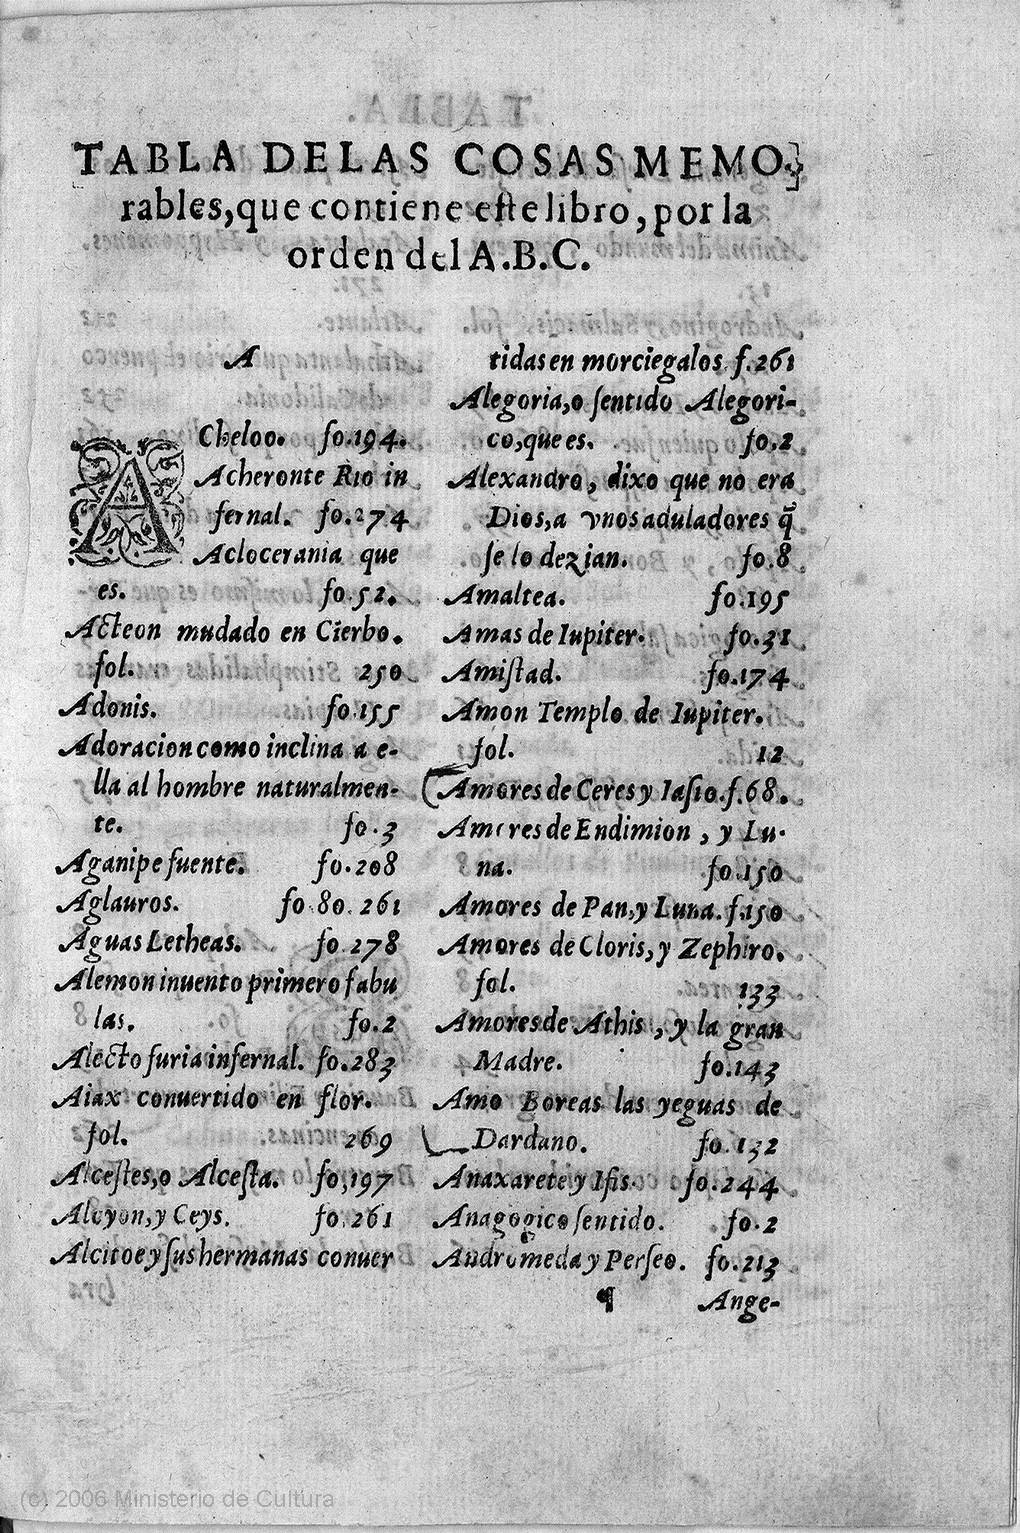 TABLA DELAS COSAS MEMO-
rables, que contiene este libro, por la
orden del A.B.C.
A
ACheloo. fo.194.
Acheronte Rio in
fernal. fo.274
Aclocerania que
es. fo.52.
Acteon mudado en Cierbo.
fol. 250
Adonis. fo.155
Adoracion como inclina a e-
lla al hombre naturalmen-
te. fo.3
Aganipe fuente. fo.208
Aglauros. fo.80. 261
Aguas Letheas. fo.278
Alemon inuento primero fabu
las. fo.2
Alecto furia infernal. fo.283
Aiax conuertido en flor.
fol. 269
Alcestes, o Alcesta. fo,197
Alcyon, y Ceys. fo.261
Alcitoe y sus hermanas conuer
tidas en morciegalos f.261
Alegoria, o sentido Alegori-
co, que es. fo.2
Alexandro, dixo que no era
Dios, a vnos aduladores q̃
se lo dezian. fo.8
Amaltea. fo.195
Amas de Iupiter. fo.31
Amistad. fo.174
Amon Templo de Iupiter.
fol. 12
Amores de Ceres y Iasio.f.68.
Amores de Endimion, y Lu-
na. fo.150
Amores de Pan, y Luna. f.150
Amores de Cloris, y Zephiro.
fol. 133
Amores de Athis, y la gran
Madre. fo.143
Amo Boreas las yeguas de
Dardano. fo.132
Anaxarete y Ifis. fo.244
Anagogico sentido. fo.2
Andromeda y Perseo. fo.213
¶ Ange-
(c) 2006 Ministerio de Cultura